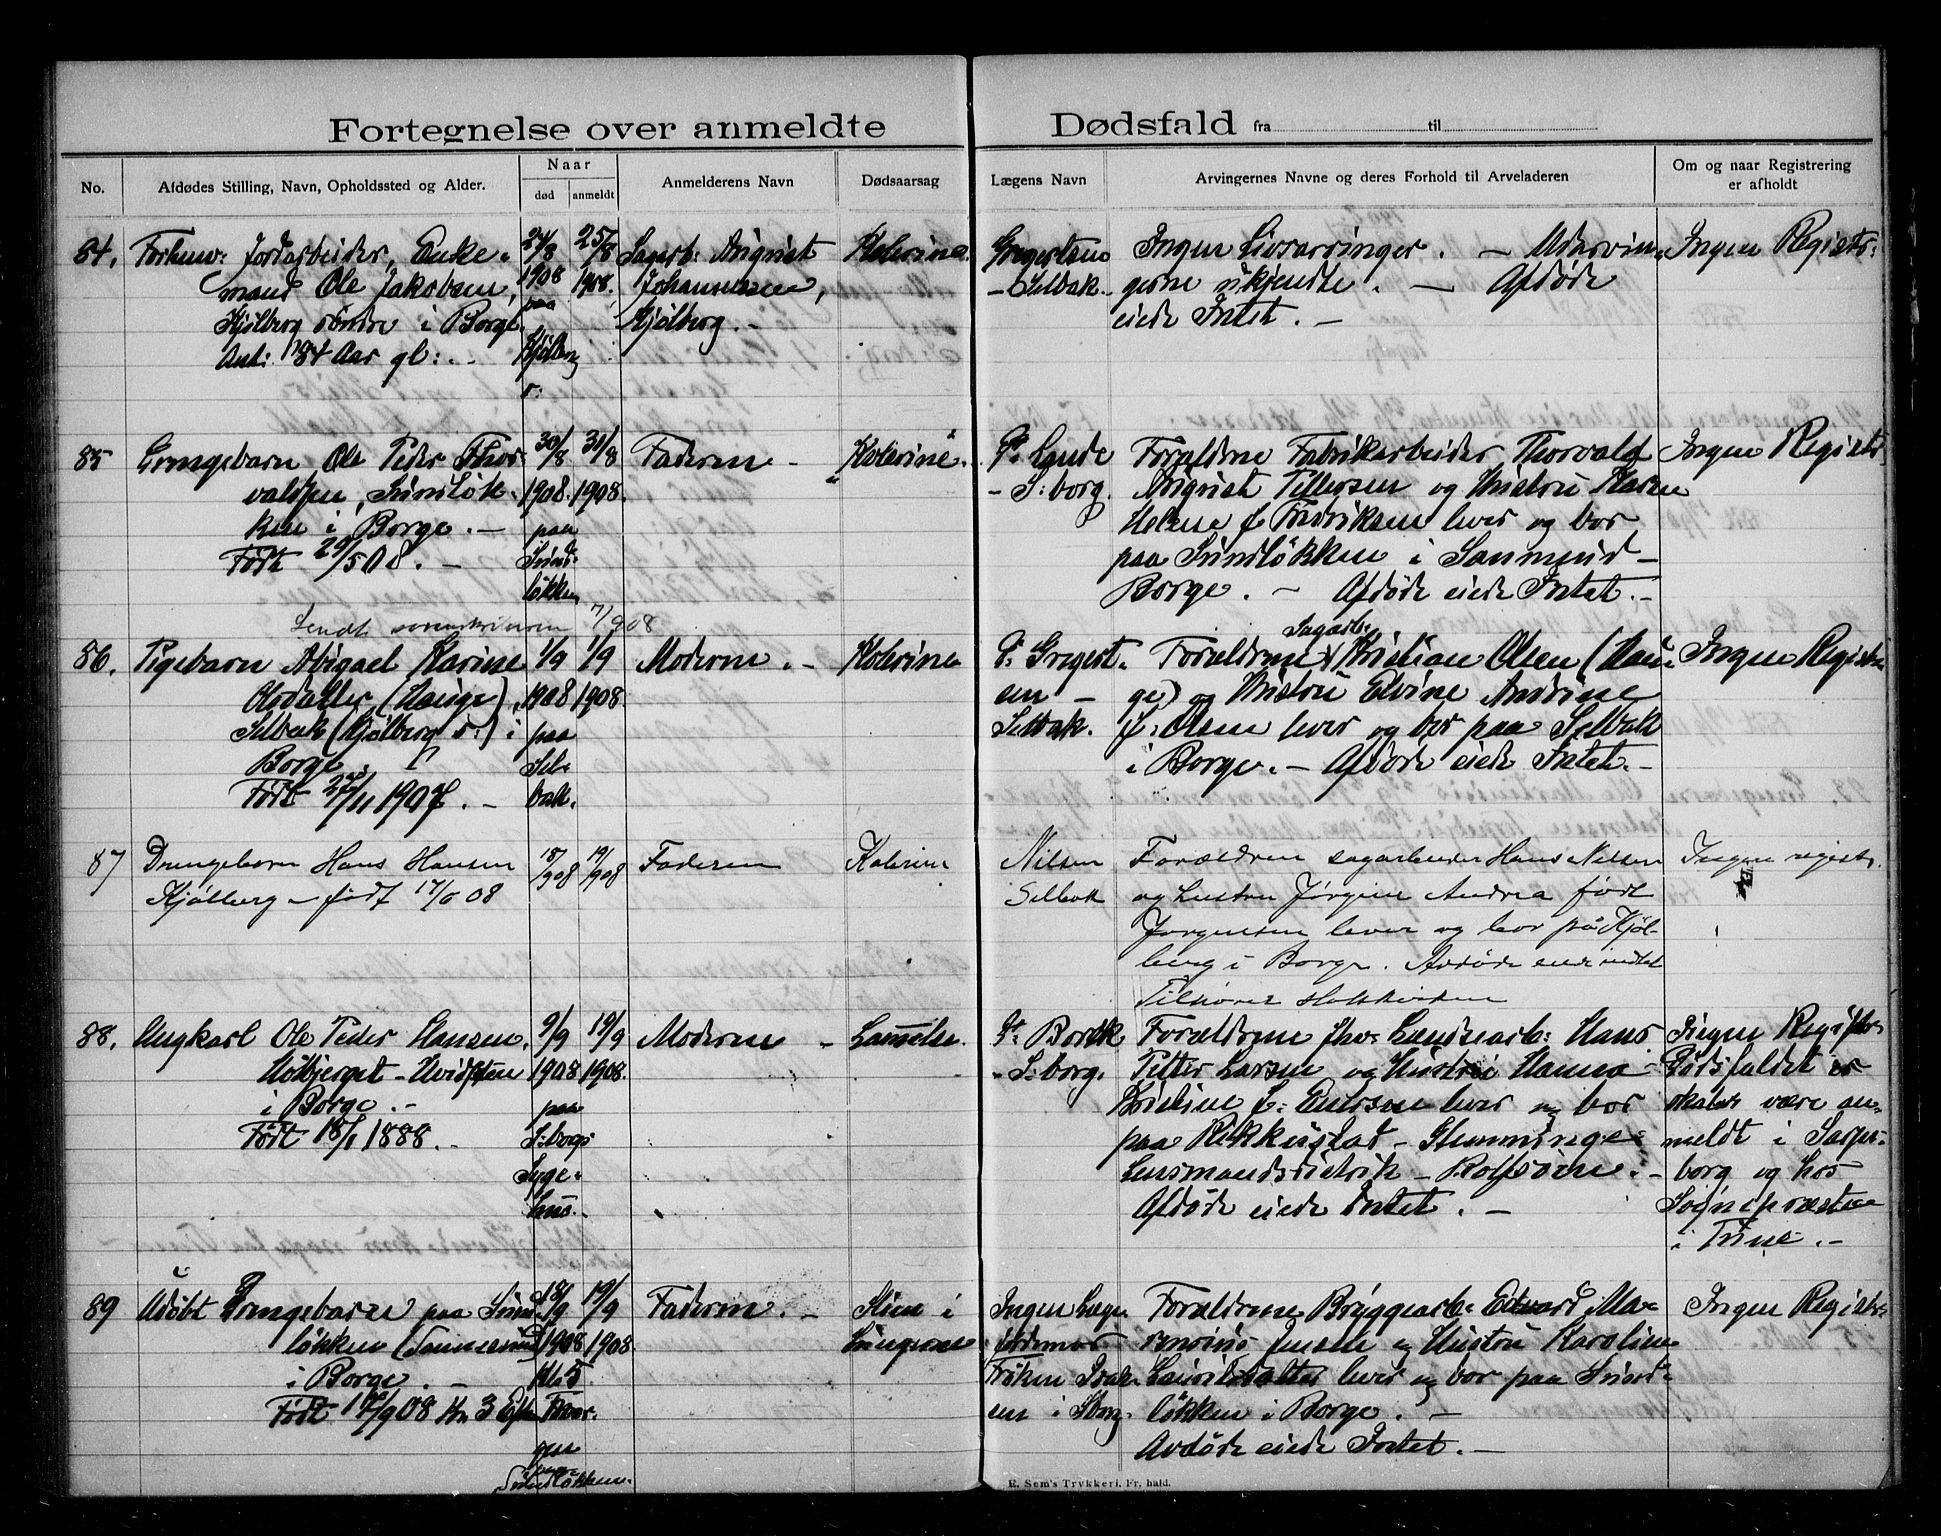 Fortegnelse over anmeldte Dødsfald fra til
No.
Afdødes Stilling, Navn, Opholdssted og Alder.
Naar
død
anmeldt
Anmelderens Navn
Dødsaarsag
Lægens Navn
Arvingernes Navne og deres Forhold til Arveladeren
Om og naar Registrering
er afholdt
84.
Forhenv: Jordarbeider, Enke-
mand Ole Jakobsen,
Kjølberg søndre i Borge.
Ant: 84 Aar gl:. —
24/8
1908
paa
Kjølberg
s:
25/8
1908.
Sagarb: August
Johannessen,
Kjølberg. —
Kolerine.
Gregertsen
— Selbak.
Ingen Livsarvinger. — Udarvin-
gerne ukjendte. — Afdøde
eiede Intet. —
Ingen Registr:
85
Drengebarn Ole Peder Thor-
valdsen, Sundløk-
ken i Borge. —
Født 29/5 08. —
30/8
1908.
paa
Sund-
løkken
31/8
1908
Faderen —
Kolerine.
Dr. Lunde
— S:borg.
Forældrene Fabrikarbeider Thorvald
August Tellersen og Hustru Karen
Helene f. Fredriksen lever og bor
paa Sundløkken i Sannesund —
Borge. — Afdøde eiede Intet. —
Ingen Registr
Sendt sorenskriveren 7/9 08
86.
Pigebarn Abigael Karine
Olsdatter (Hauge),
Selbak (Kjølberg s:) i
Borge.
Født 27/11 1907. —
1/9
1908
paa
Sel-
bak.
1/9
1908
Moderen. —
Kolerine
Dr. Gregert-
sen —
Selbak.
Sagarb:
Forældrene Kristian Olsen (Hau-
ge) og Hustru Elvine Andrine
f: Olsen lever og bor paa Selbak
i Borge. — Afdøde eiede Intet. —
Ingen Registr
87
Drengebarn Hans Hansen
Kjølberg — født 17/6 08
18/9 08
19/9 08
Faderen
Kolerine
Nilsen
Selbak
Forældren sagarbeider Hans Nilsen
og hustru Jørgine Andrea født
Jørgensen lever og bor på Kjøl-
berg i Borge. Avdøde eiede intet
Ingen registr.
88.
Ungkarl Ole Peder Hansen,
Høibjerget — Hvidsten
i Borge. —
Født 18/1 1888. —
9/9
1908
paa
S:borgs
Syge-
hus. —
19/9
1908.
Moderen —
Dr. Borck
— S:borg.
Forældrene fhv: Lændsearb: Hans
Petter Larsen og Hustru Hanna
Kristine f: Evensen lever og bor
paa Rekkustad — Glemminge
Lensmandsdistrik — Rolfsøen. —
Afdøde eiede Intet. —
Ingen Registr.
Dødsfaldet er
skal være an-
meldt i Sarps-
borg og hos
Sognepræsten
i Tune. —
89
Udøbt Drengebarn paa Sund-
løkken (Sannesund)
i Borge. —
Født 17/9 08 Kl 3 Eft
18/9
1908
Kl 5
For-
paa
Sundløkken.
19/9
1908
Faderen. —
Slim i
Lungerne
Ingen Læge
Jordemor
Frøken Isak-
sen i S:borg.
Forældrene Bryggearb: Edvard Ma-
rensius Jensen og Hustru Karoline
Lauritsdatter lever og bor paa Sund-
løkken i Borge. —
Avdøde eiede Intet. —
Ingen Registr.
E. Sem's Trykkeri, Fr. hald.